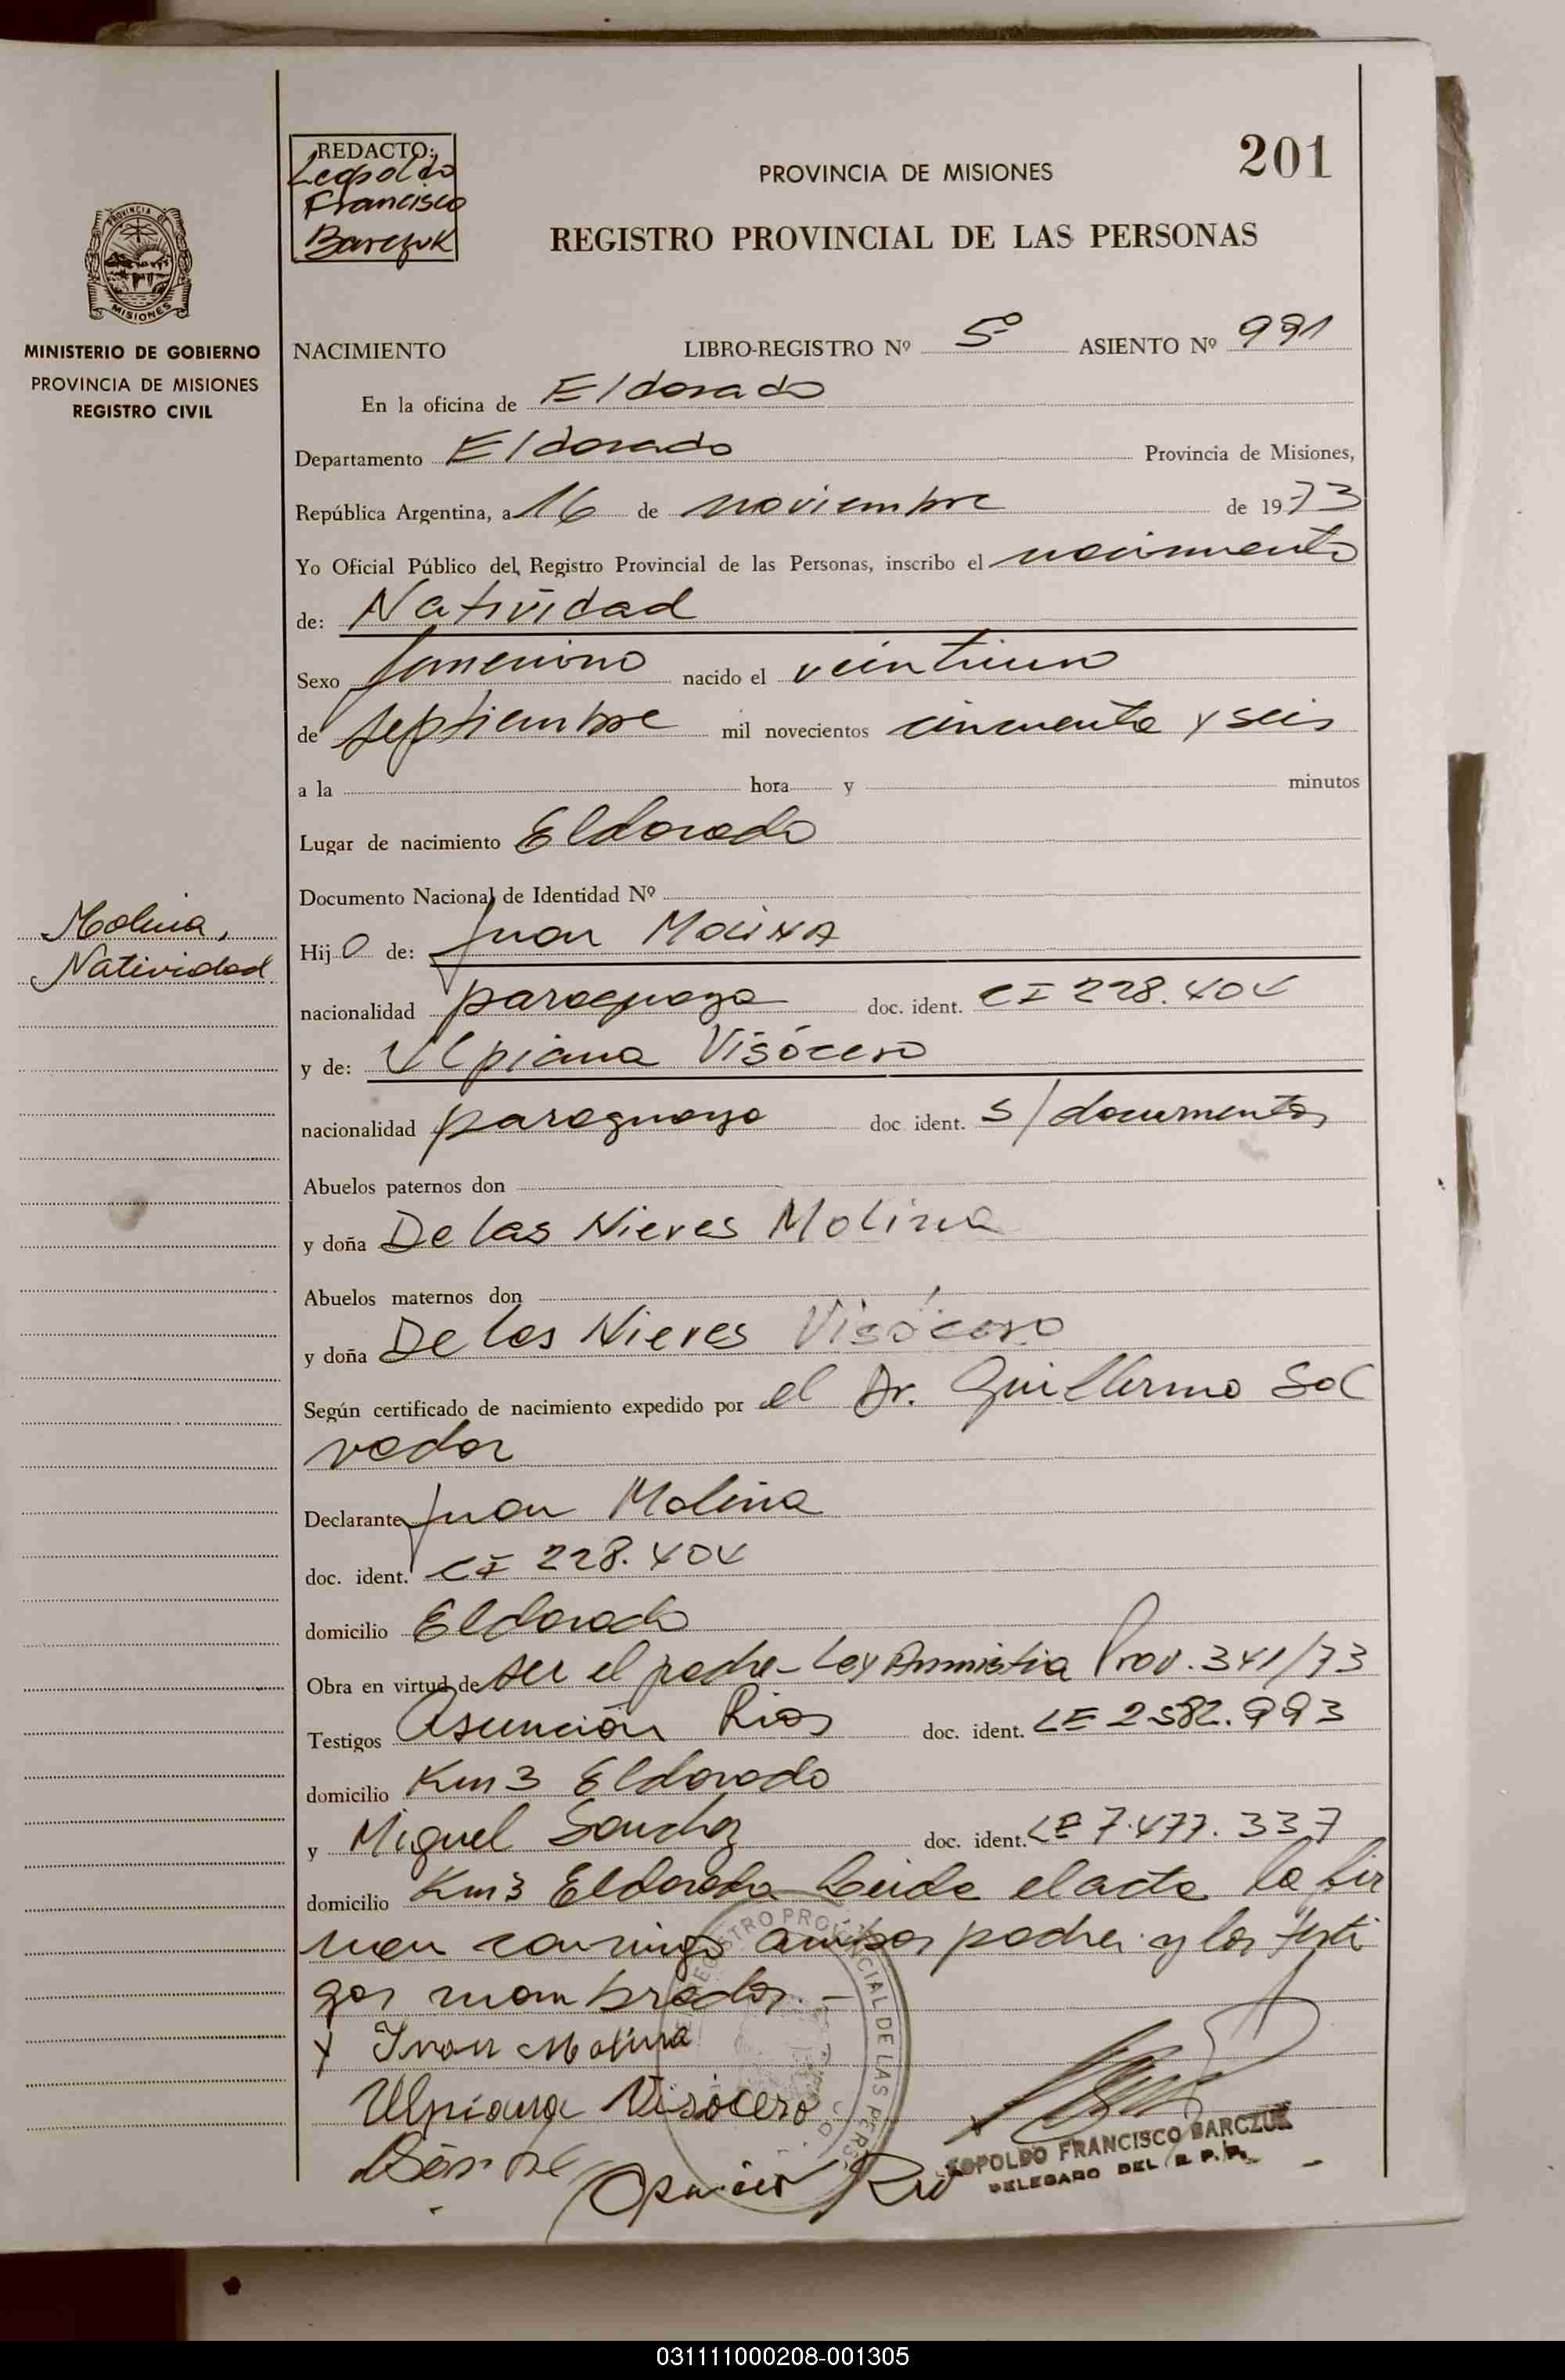 REDACTO:
Leopoldo
Francisco
Barczuk
PROVINCIA DE MISIONES
201
REGISTRO PROVINCIAL DE LAS PERSONAS
PROVINCIA DE
MISIONES
MINISTERIO DE GOBIERNO
PROVINCIA DE MISIONES
REGISTRO CIVIL
NACIMIENTO LIBRO-REGISTRO Nº 5º ASIENTO Nº 991
En la oficina de Eldorado
Departamento Eldorado Provincia de Misiones,
República Argentina, a 16 de noviembre de 1973
Yo Oficial Público del Registro Provincial de las Personas, inscribo el nacimiento
de: Natividad
Sexo femenino nacido el veintiuno
de septiembre mil novecientos cincuenta y seis
a la hora y minutos
Lugar de nacimiento Eldorado
Documento Nacional de Identidad Nº
Molina,
Natividad
Hij O de: Juan Molina
nacionalidad paraguaya doc. ident. CI 228.404
y de: Ulpiana Visócero
nacionalidad paraguaya doc ident. S/documentos
Abuelos paternos don
y doña De las Nieves Molina
Abuelos maternos don
y doña De las Nieves Visócero
Según certificado de nacimiento expedido por el Dr. Guillermo Sal
vador
Declarante Juan Molina
doc. ident. CI 228.404
domicilio Eldorado
Obra en virtud de ser el padre - Ley Amnistia Prov. 341/73
Testigos Asunción Rios doc. ident. LE 2582.993
domicilio Km 3 Eldorado
y Miguel Sanchez doc. ident. LE 7.477.337
domicilio Km 3 Eldorado Leida el acta la fir
man conmigo ambos padres y los testi
gos nombrados.-
x Juan Molina
Ulpiana Visócero
REGISTRO PROVINCIAL DE LAS PERS
LEOPOLDO FRANCISCO BARCZUK
DELEGADO DEL R. P. P.
031111000208-001305